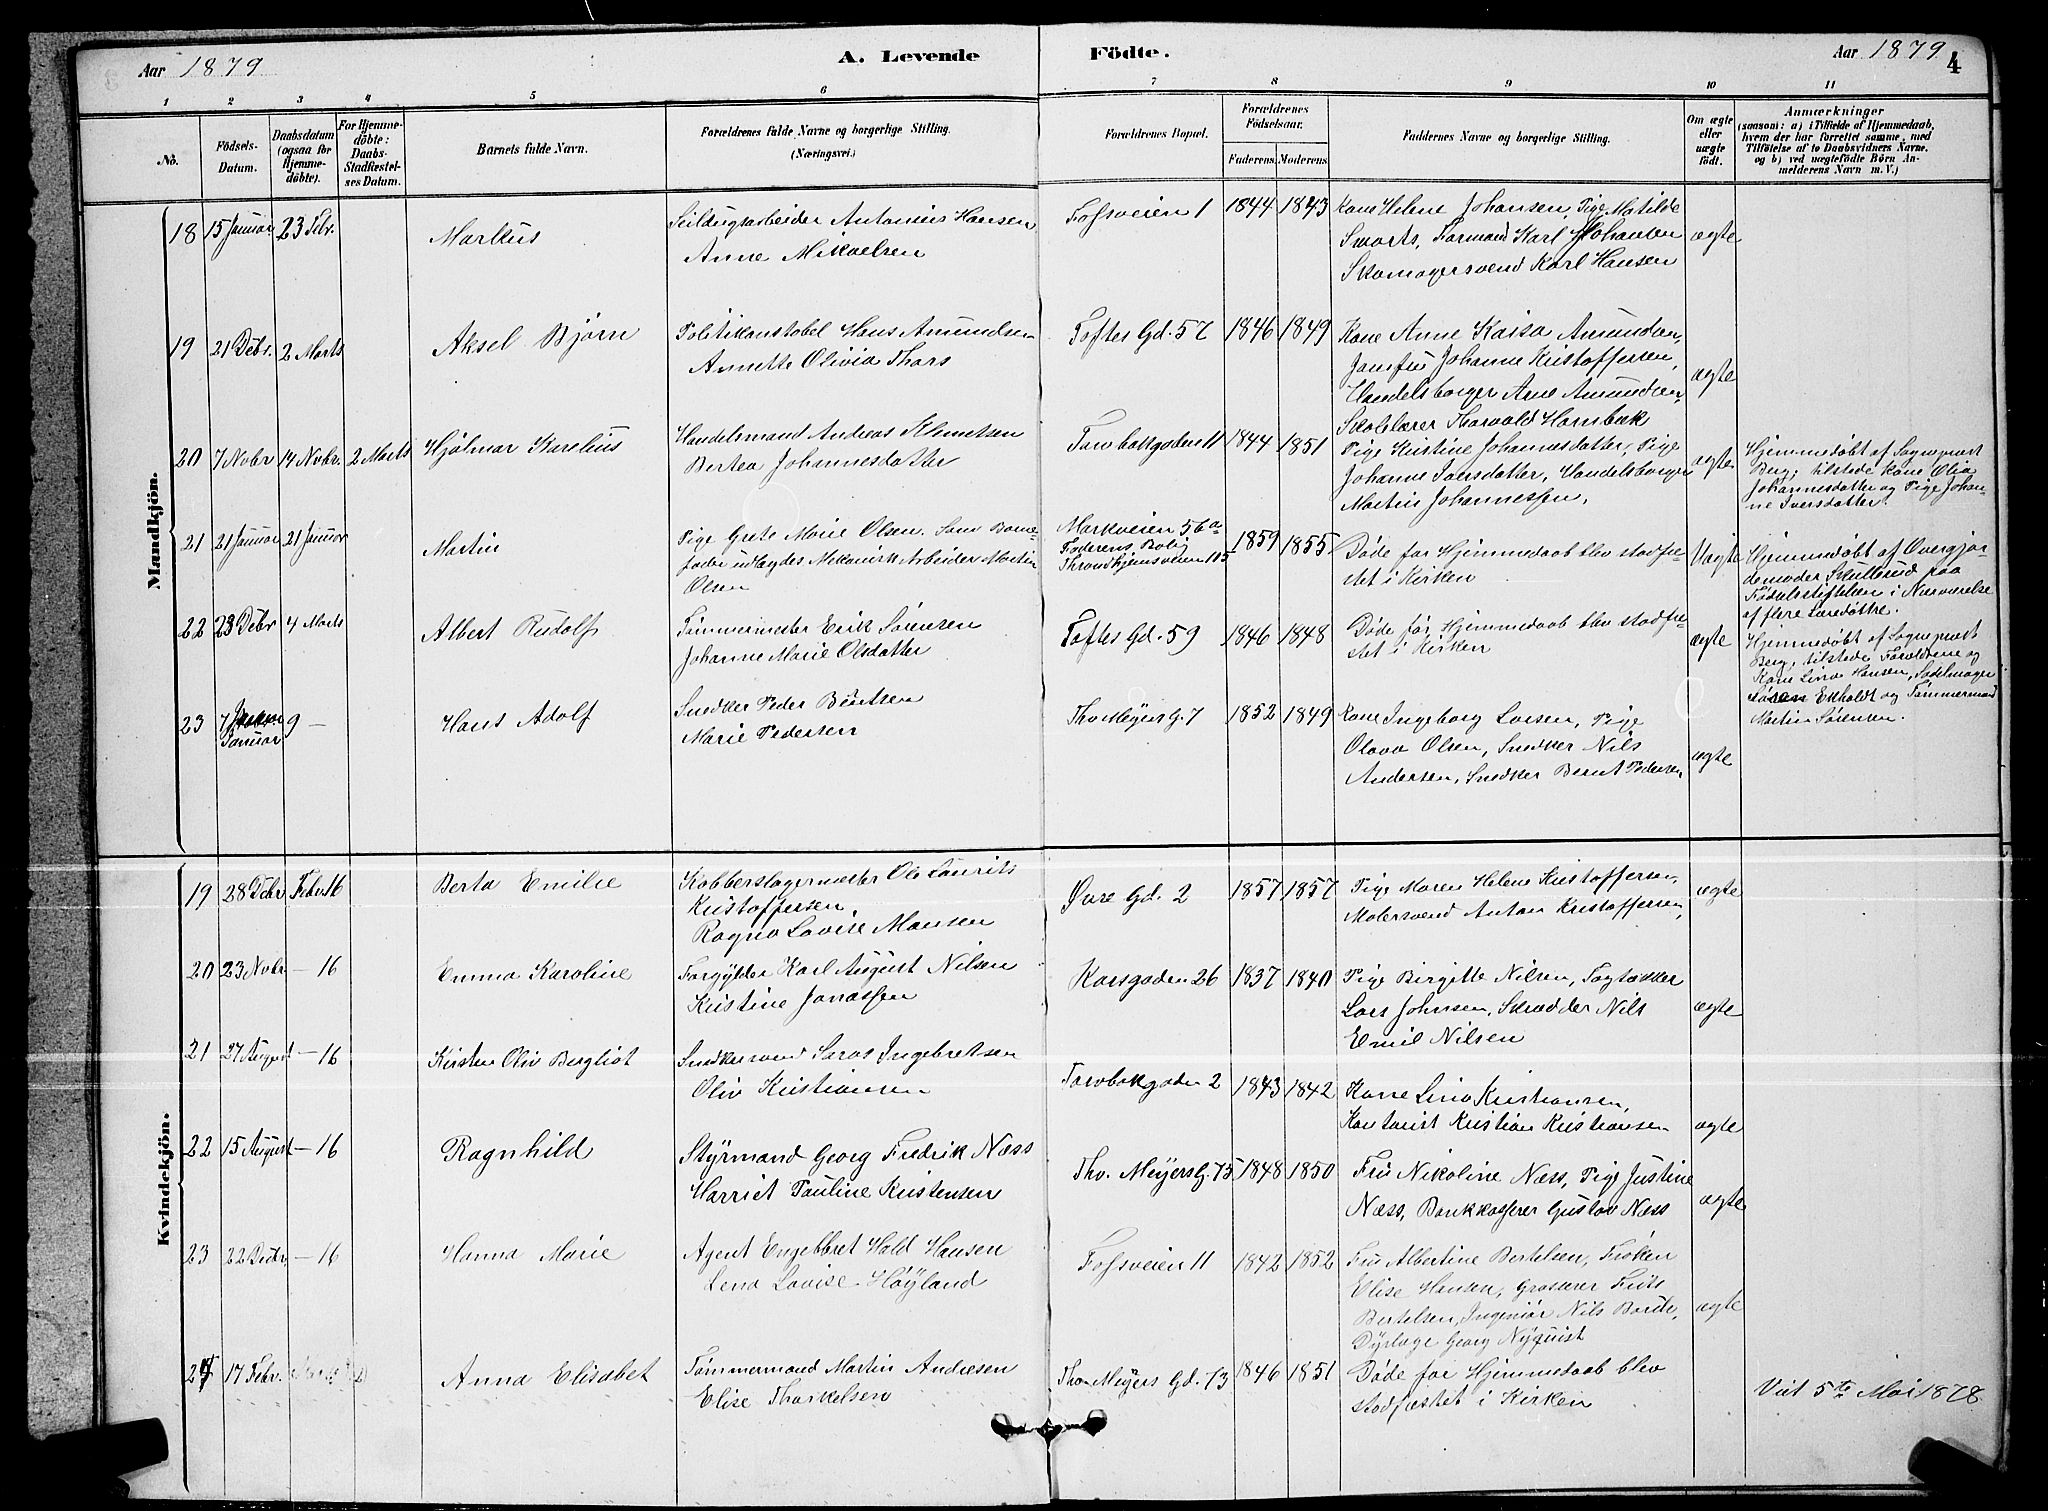 Aar 1879
A. Levende Födte.
Aar 1879
4
1 2 3 4 5 6 7 8 9 10 11
No.
Födsels-Datum.
Daabsdatum (ogsaa for Hjemme-döbte).
For Hjemme-döbte: Daabs-Stadfæstel-ses Datum.
Barnets fulde Navn.
Forældrenes fulde Navne og borgerlige Stilling.
(Næringsvei.)
Forældrenes Bopæl.
Forældrenes Födselsaar.
Faderens. Moderens.
Faddernes Navne og borgerlige Stilling.
Om ægte eller uægte født.
Anmærkninger
(saasom: a) i Tilfælde af Hjemmedaab,
hvem der har forrettet samme, med
Tilföielse af to Daabsvidners Navne,
og b) ved uægtefödte Börn An-
melderens Navn m. V.)
Mandkjön.
18 15 Januar 23 Febr.
Markus
Seildugsarbeider Antonius Hansen
Anne Mikaelsen
Fossveien 1
1844 1843
Kone Helene Johansen, Pige Matilde
Swarts, Formand Karl Johansen
Skomagersvend Karl Hansen
ægte
19 21 Debr. 2 Marts
Aksel Bjørn
Politikonstabel Hans Amundsen
Annette Olivia Thors
Toftes Gd. 57
1846 1849
Kone Anne Kaisa Amundsen,
Jomfru Johanne Kristoffersen,
Handelsborger Arne Amundsen,
Skolelærer Thorvald Hornbæk
ægte
20 7 Novbr 14 Novbr. 2 Marts
Hjalmar Karelius
Handelsmand Andreas Klemetsen
Bertea Johannesdatter
Torvbakgaden 11
1844 1851
Pige Kristine Johannesdatter, Pige
Johanne Iversdatter, Handelsborger
Martius Johannessen,
ægte
Hjemmedøbt af Sognepræst
Berg; tilstede Kone Olia
Johannesdatter og Pige Johan-
ne Iversdatter.
21 21 Januar 21 Januar
Martin
Pige Grete Marie Olsen. Som Barne-
fader udlægdes Mekanisk Arbeider Martin
Olsen
Markveien 56a
Faderens Bolig
Throndhjemsveien 115
1859 1855
Døde før Hjemmedaab blev stadfæ-
stet i Kirken
Uægte
Hjemmedøbt af Overgjor-
demoder Skullerud paa
Fødselsstiftelsen i Nærværelse
af flere Læredøttre.
22 23 Debr 4 Marts
Albert Rudolf
Tømmermester Erik Sørensen
Johanne Marie Olsdatter
Toftes Gd. 59
1846 1848
Døde før Hjemmedaab blev stadfæ-
stet i Kirken
ægte
Hjemmedøbt af Sognepræst
Berg, tilstede Forældrene og
Kone Lina Hansen, Sadelmager
Søren Ekholdt og Tømmermand
Martin Sørensen.
23 7 Januar 9 —
Hans Adolf
Snedker Peder Berntsen
Marie Pedersen
Thv Meyers G. 7
1852 1849
Kone Ingeborg Larsen, Pige
Olava Olsen, Snedker Nils
Andersen, Snedker Bernt Pedersen
ægte
Kvindekjön.
19 28 Debr Febr 16
Berta Emilie
Kobberslagermester Ole Laurits
Kristoffersen,
Ragna Lovise Monsen
Øvre Gd. 2
1857 1857
Pige Maren Helene Kristoffersen,
Malersvend Anton Kristoffersen,
ægte
20 23 Novbr — 16
Emma Karoline
Forgylder Karl August Nilsen
Kristine Jonassen
Korsgaden 26
1837 1840
Pige Birgitte Nilsen, Tagtækker
Lars Johnsen, Skrædder Nils
Emil Nilsen
ægte
21 27 August — 16
Kirsten Oliv Bergliot
Snedkersvend Ingebretsen
Oliv Kristiansen
Torvbakgaden 2
1843 1842
Kone Lina Kristiansen,
Kontorist Kristian Kristiansen
ægte
22 15 August — 16
Ragnhild
Styrmand Georg Fredrik Næss
Harriet Pauline Kristensen
Thv. Meyers G. 75
1848 1850
Fru Nikoline Næss, Pige Justine
Næss, Bankkasserer Gustav Næss
ægte
23 22 Debr. — 16
Hanna Marie
Agent Engebbret Hald Hansen
Lena Lovise Høyland
Fossveien 11
1842 1852
Fru Albertine Bertelsen, Frøken
Elise Hansen, Grosserer Frits
Bertelsen, Ingeniør Nils Borde,
Dyrlæge Georg Nyquist
ægte
24 17 Febr.
Anna Elisabet
Tømmermand Martin Andresen
Elise Thorkelsen
Thv Meyers Gd. 73
1846 1851
Døde før Hjemmedaab blev
stadfæstet i Kirken
Viet 5te Mai 1878.